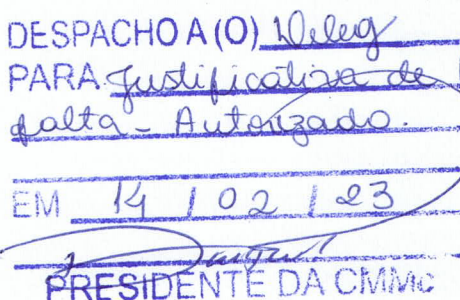 DESPACHO A(O) Deleg
PARA Justificativa de
falta - Autorizado.
EM 14 / 02 / 23
PRESIDENTE DA CMMc